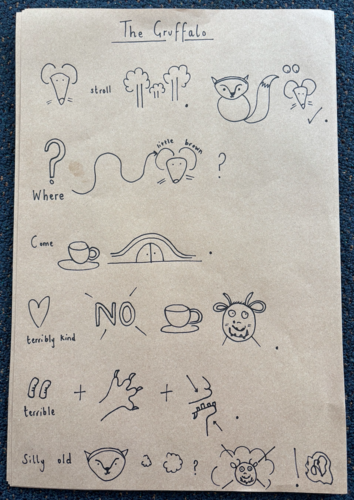 The Gruffalo
stroll .
.
? little brown ?
Where
Come .
NO
terribly kind
+ + .
terrible
Silly old ? !